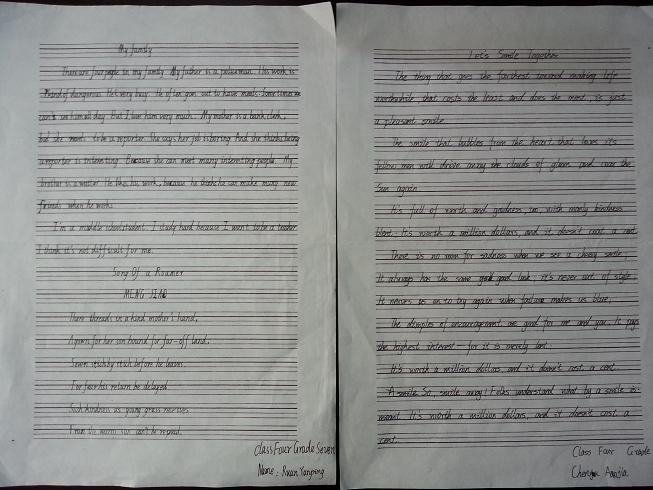 My family
There are four people in my family. My father is a policeman. His work is
kind of dangerous. He's very busy. He often goes out to have meals. Sometimes we
can't see him all day. But I love him very much. My mother is a bank clerk,
but she wants to be a reporter. She says her job is boring. And she thinks being
a reporter is interesting. Because she can meet many interesting people. My
brother is a waiter. He likes his work, because he thinks he can make many new
friends when he works.
I'm a middle school student. I study hard because I want to be a teacher.
I think it's not difficult for me.
Song Of a Roamer
MENG JIAO
There threads in a kind mother's hand,
A gown for her son bound for far-off land,
Sewn stitch by stitch before he leaves.
For fear his return be delayed.
Such kindness as young grass receives
From the warm sun can't be repaid.
Class Four Grade Seven
Name: Ruan Yanping
Let's Smile Together
The thing that goes the farthest toward making life
worthwhile that costs the least and does the most, is just
a pleasant smile.
The smile that bubbles from the heart that loves its
fellow men will drive away the clouds of gloom and coax the
Sun again
It's full of worth and goodness, too, with manly kindness
blent. It's worth a million dollars, and it doesn't cost a cent.
There is no room for sadness when we see a cheery smile;
It always has the same good look; it's never out of style;
It nerves us on to try again when failure makes us blue;
The dimples of encouragement are good for me and you. It pays
the highest interest — for it is merely lent.
It's worth a million dollars, and it doesn't cost a cent.
A smile So, smile away! Folks understand what by a smile is
meant. It's worth a million dollars, and it doesn't cost a
cent.
Class Four Grade